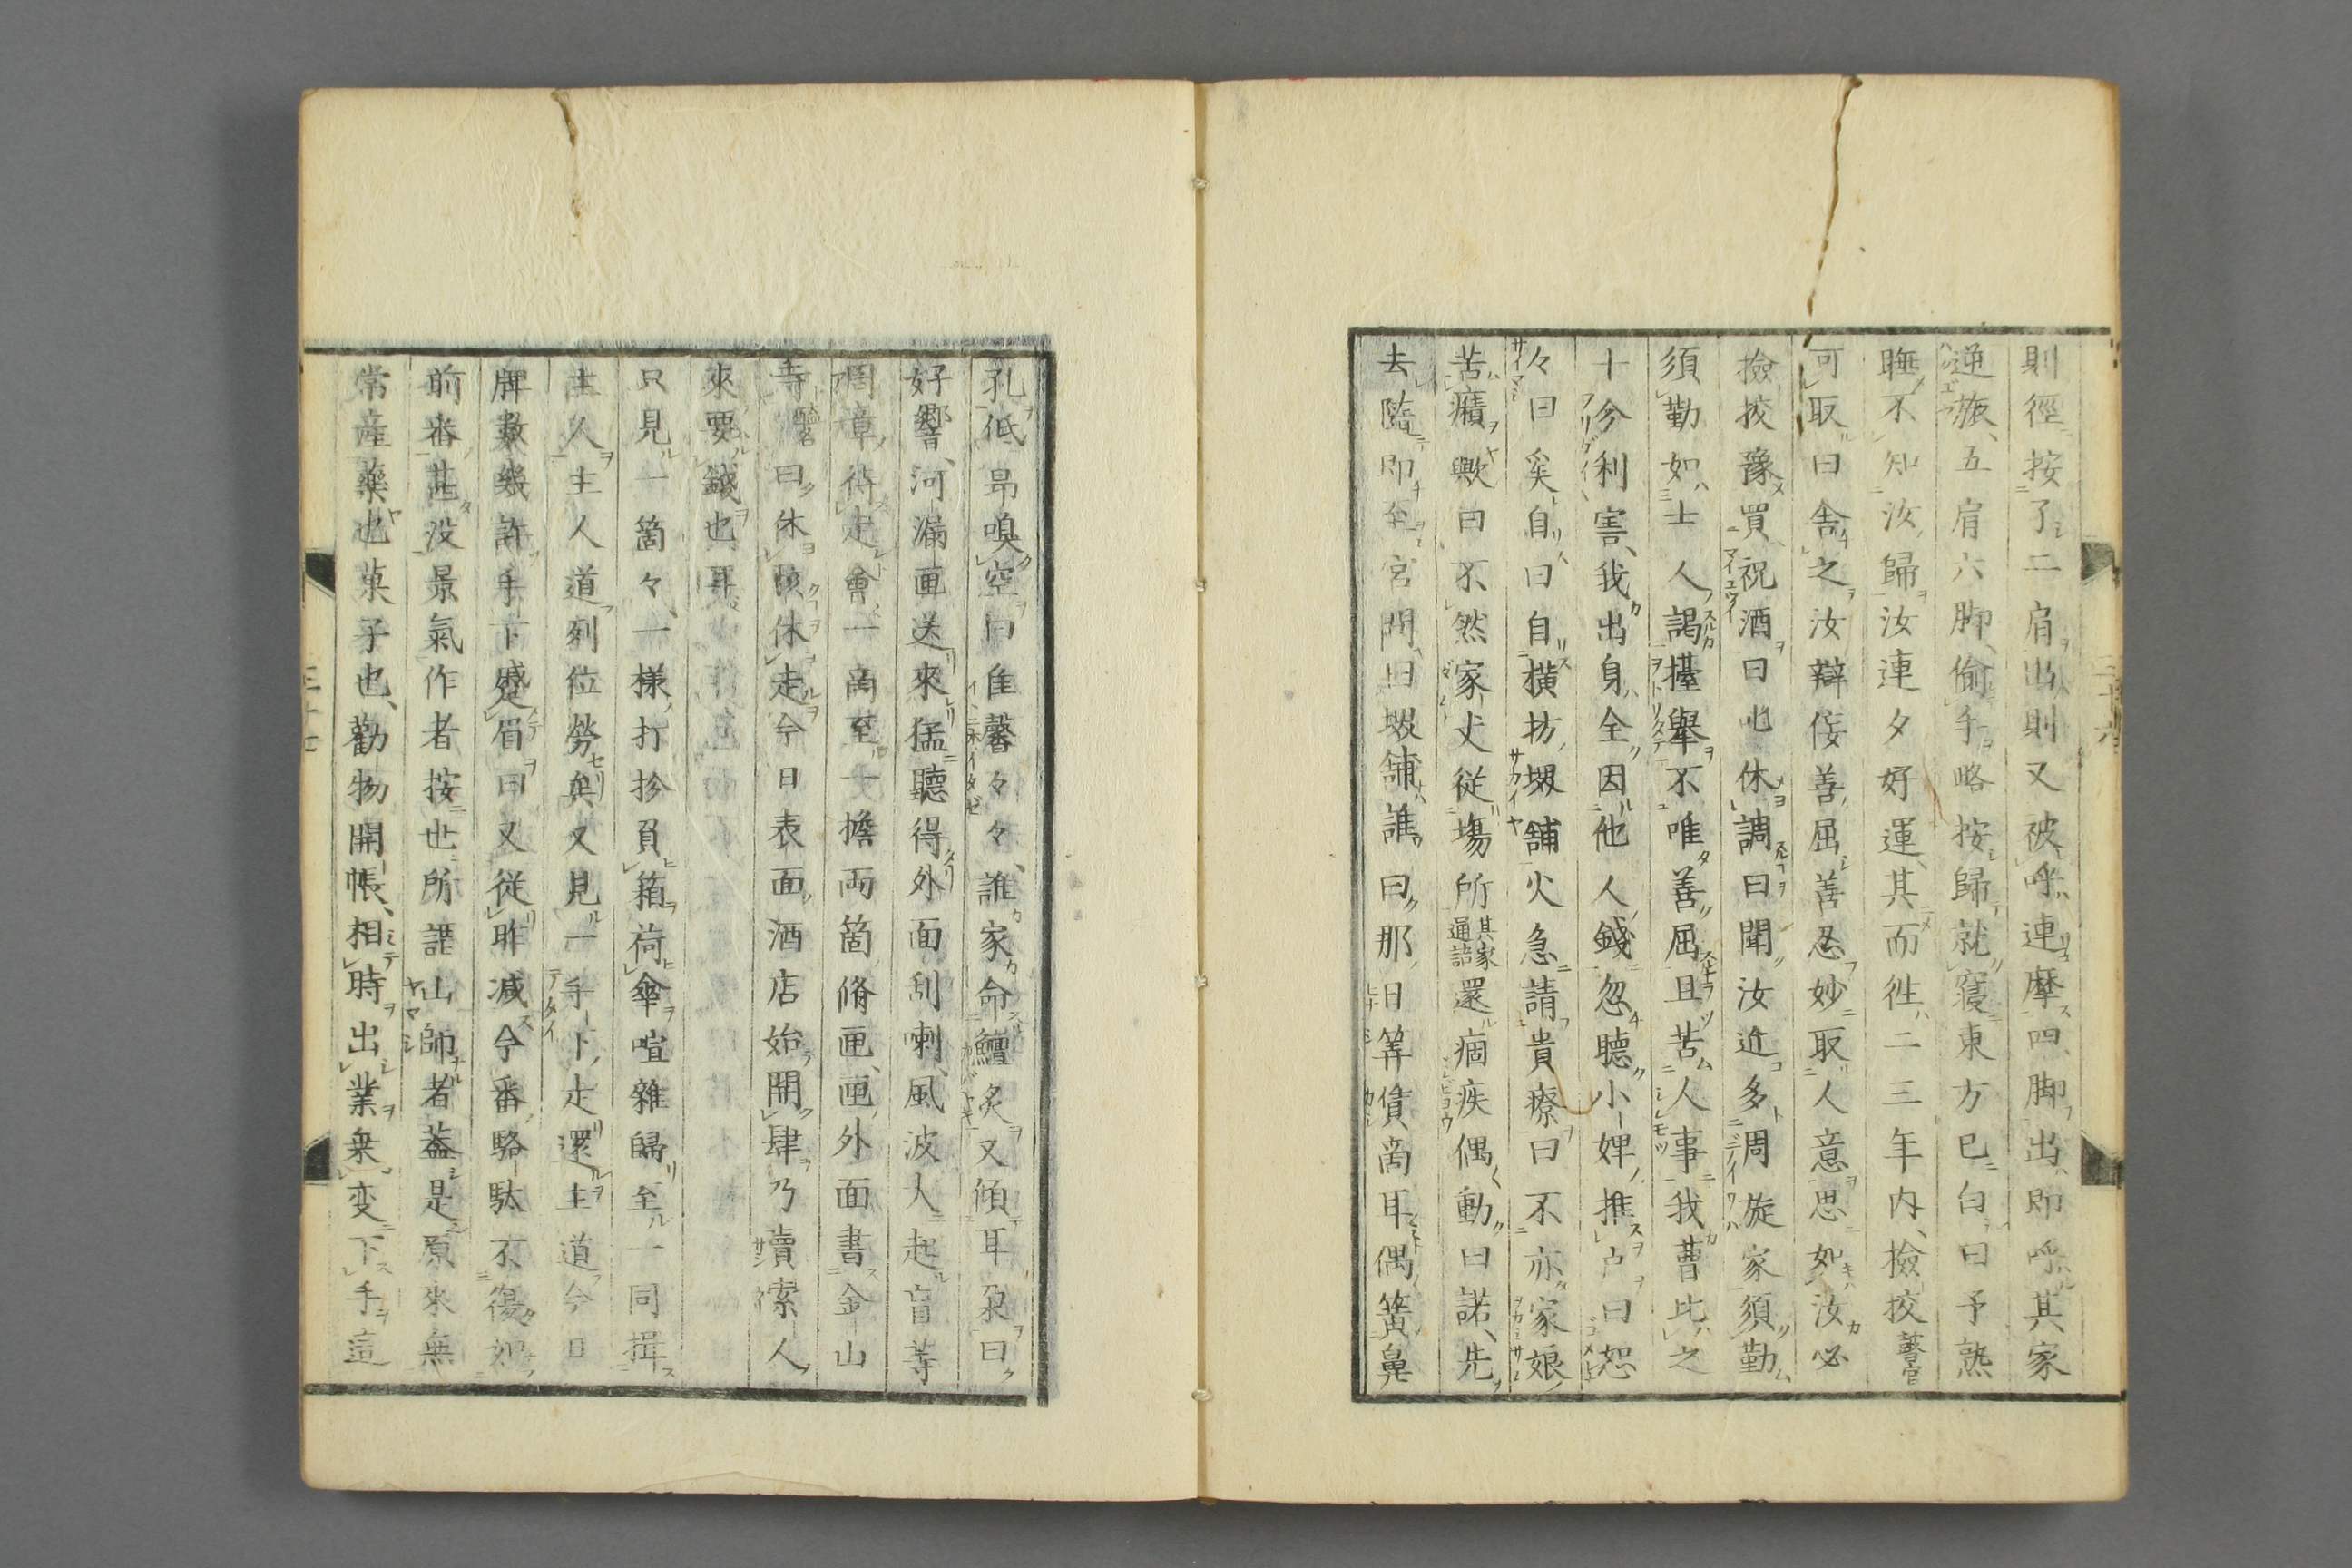 則徑按了二肩出則又被呼連摩四脚出即呼其家
逆旅五肩六脚偷手略按歸就寢東方已白曰予熟
睡不知汝歸汝連夕好運其而徃二三年內檢挍
可取曰舎之汝辯侫善屈善忍妙取人意思如汝必
撿挍豫買祝酒曰咄休調曰聞汝近多周旋家須勤
須勤如士人謁擡舉不唯善屈且苦人事我曹比之
十分利害我出身全因他人錢忽聽小婢推戶曰恕
々曰奚自曰自橫坊堺舖火急請貴療曰不亦家娘
苦癪歟曰不然家丈從塲所其家通語還痼疾偶動曰諾先
去隨即至宮門曰堺舖誰曰那日筭債啇耳偶簧鼻
孔低昻嗅空曰隹馨々々誰家命鱣炙又傾耳朶曰
好響河漏画送來猛聽得外面刮喇風波人起盲等
周章待走會一啇至一擔両箇脩画画外面書金山
寺曰休駭休走今日表面酒店始開肆乃賣索人
來要錢也耳
只見一箇々一樣打扮負箱荷傘喧雜歸至一同揖
主人主人道列位勞矣又見一手卜走還主道今日
牌數幾許手下蹙眉曰又從昨减今番駱駄不復如
前番甚没景氣作者按世所謂山師者葢是原來無
常產藥也菓子也勸物開帳相時出業衆変下手這
三十六